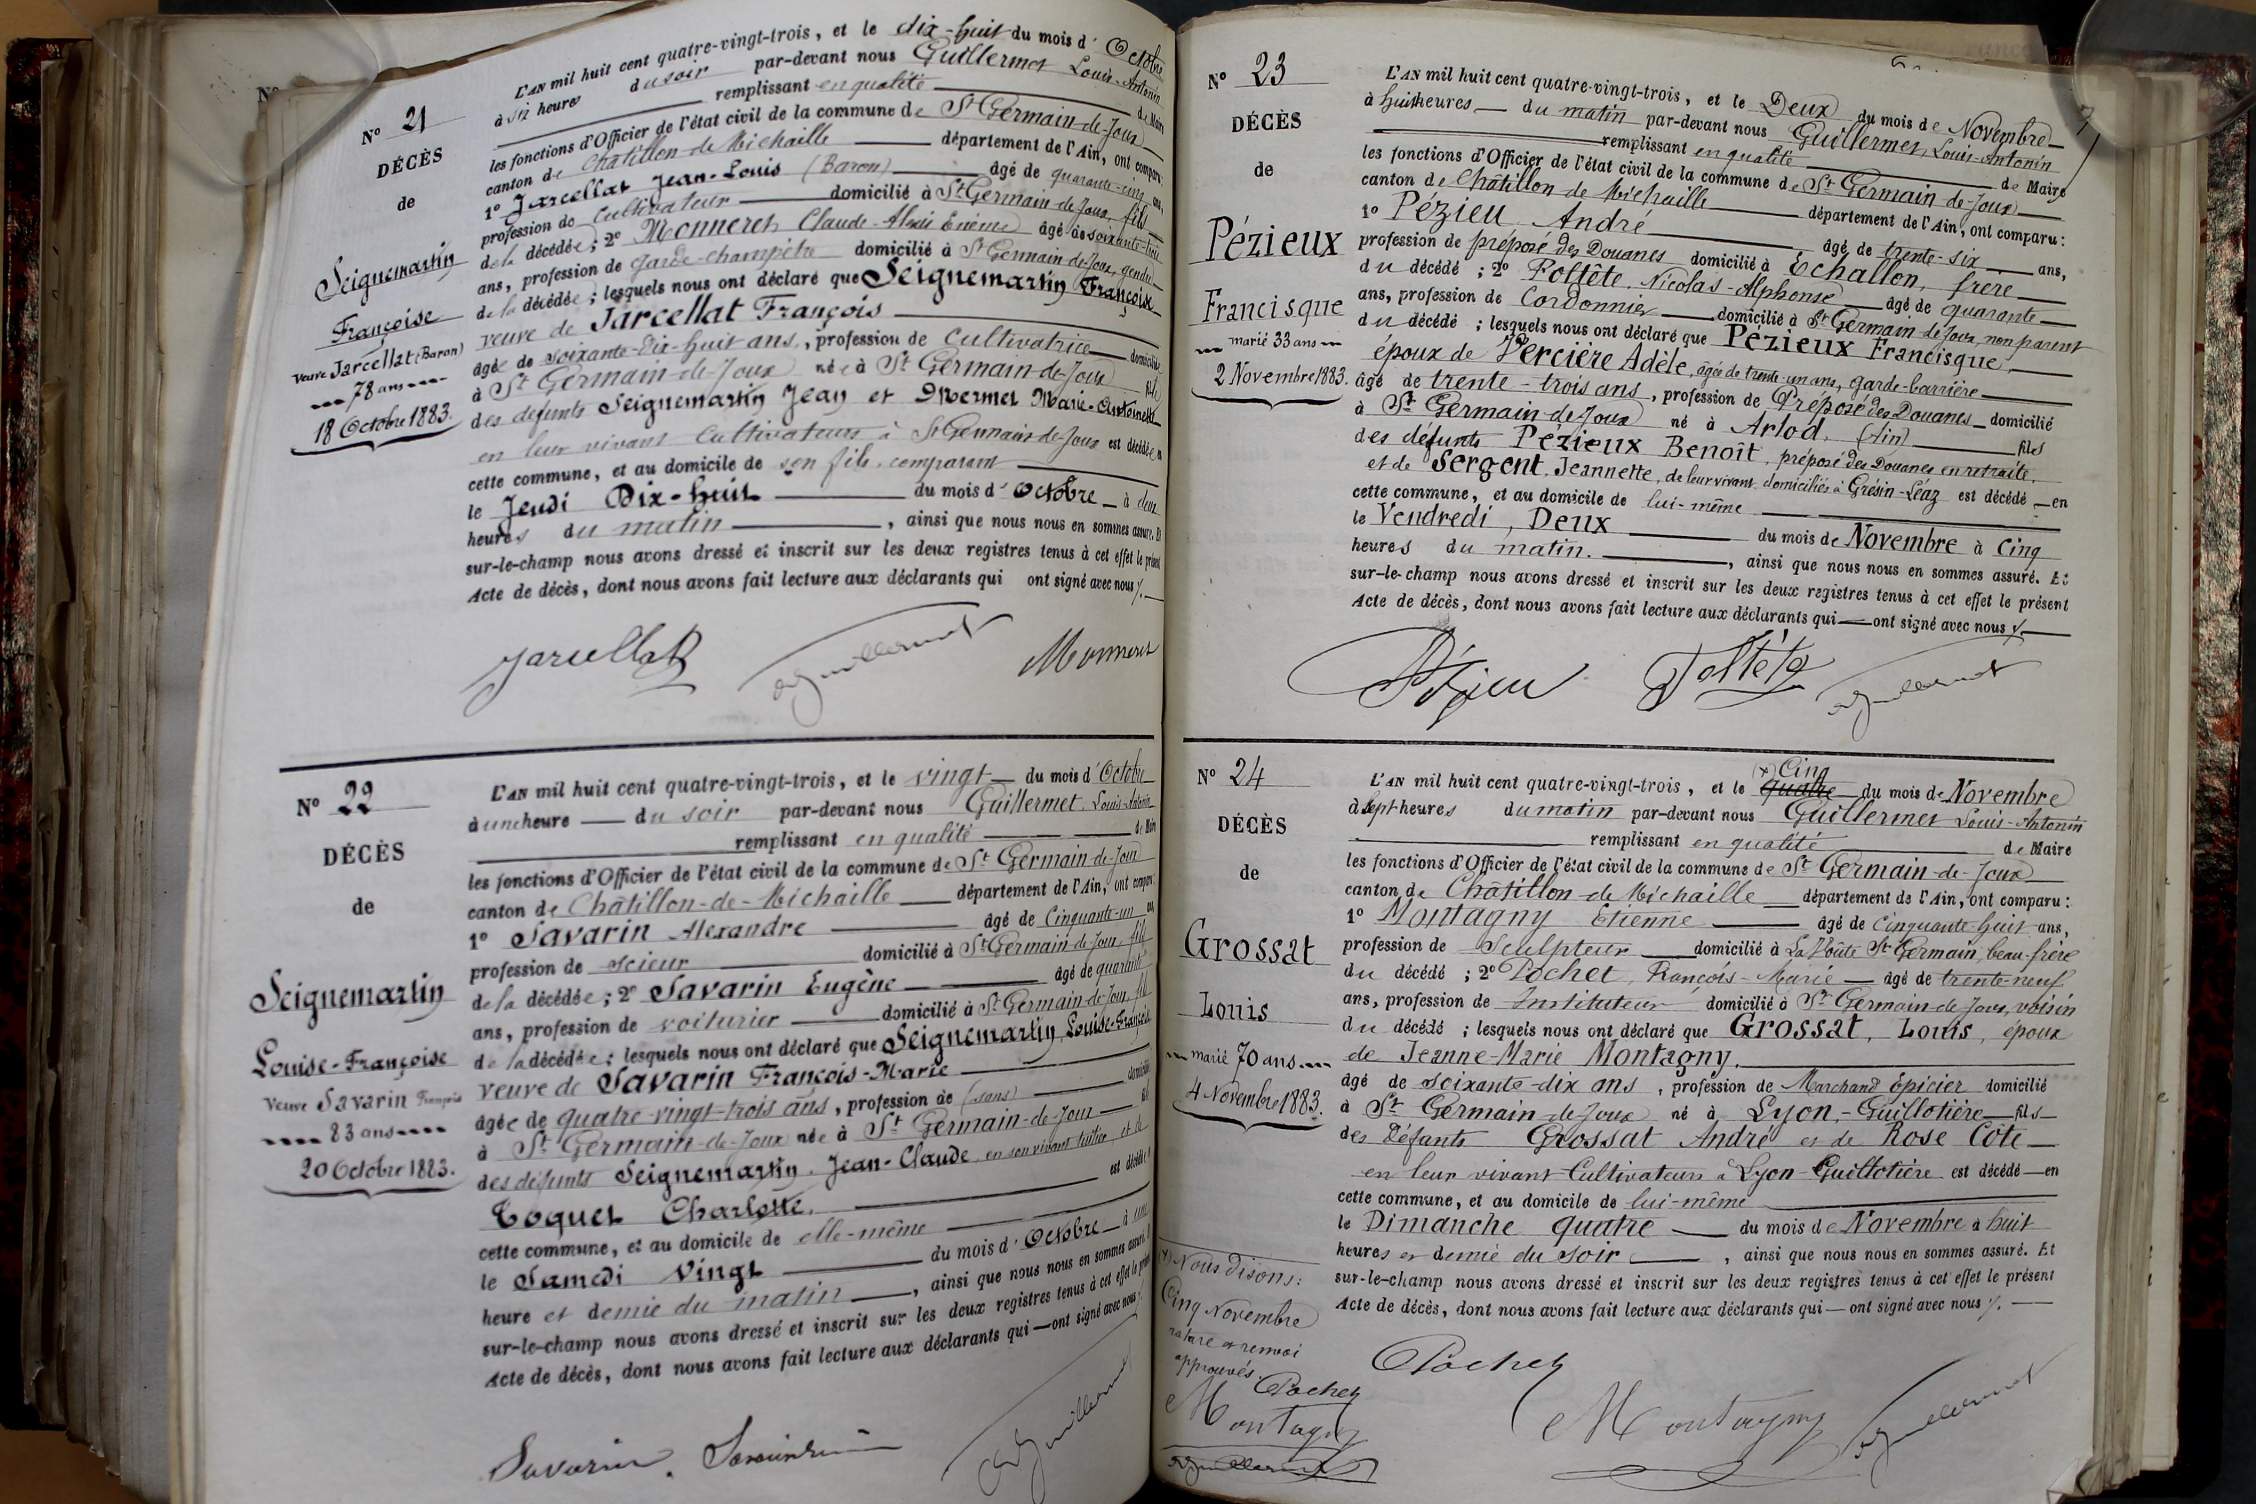 N° 21
DÉCÈS
de
Seignemartin
Françoise
Veuve Jarcellat (Baron)
78 ans
18 Octobre 1883.
L'AN mil huit cent quatre-vingt-trois, et le dix-huit du mois d'Octobre
à six heures du soir par-devant nous Guillermet Louis-Antonin
remplissant en qualité de Maire
les fonctions d'Officier de l'état civil de la commune de St Germain-de-Joux
canton de Châtillon-de-Michaille département de l'Ain, ont comparu:
1° Jarcellat Jean-Louis (Baron) âgé de quarante-cinq ans,
profession de Cultivateur domicilié à St Germain-de-Joux, fils
de la décédée; 2° Monneret Claude-Alexis âgé de soixante-
ans, profession de garde-champêtre domicilié à St Germain-de-Joux, gendre
de la décédée; lesquels nous ont déclaré que Seignemartin Françoise
veuve de Jarcellat François
âgée de soixante-dix-huit ans, profession de Cultivatrice domiciliée
à St Germain-de-Joux née à St Germain-de-Joux fille
des défunts Seignemartin Jean et Mermet Marie-Antoinette
en leur vivant Cultivateurs à St Germain-de-Joux est décédée en
cette commune, et au domicile de son fils, comparant
le Jeudi Dix-huit du mois d'Octobre à deux
heures du matin, ainsi que nous nous en sommes assuré. Et
sur-le-champ nous avons dressé et inscrit sur les deux registres tenus à cet effet le présent
Acte de décès, dont nous avons fait lecture aux déclarants qui ont signé avec nous
Jarcellat Guillermet Monneret
N° 22
DÉCÈS
de
Seignemartin
Louise-Françoise
Veuve Savarin François
83 ans
20 Octobre 1883.
L'AN mil huit cent quatre-vingt-trois, et le vingt du mois d'Octobre
à une heure du soir par-devant nous Guillermet Louis-Antonin
remplissant en qualité de Maire
les fonctions d'Officier de l'état civil de la commune de St Germain-de-Joux
canton de Châtillon-de-Michaille département de l'Ain, ont comparu:
1° Savarin Alexandre âgé de Cinquante-un ans
profession de scieur domicilié à St Germain-de-Joux, fils
de la décédée; 2° Savarin Eugène âgé de quarante
ans, profession de voiturier domicilié à St Germain-de-Joux, fils
de la décédée; lesquels nous ont déclaré que Seignemartin Louise-Françoise
veuve de Savarin François-Marie
âgée de quatre-vingt-trois ans, profession de (sans) domiciliée
à St Germain-de-Joux née à St Germain-de-Joux fille
des défunts Seignemartin Jean-Claude, en son vivant et de
Toquet Charlotte. est décédée
cette commune, et au domicile de elle-même
le Samedi Vingt du mois d'Octobre à une
heure et demie du matin, ainsi que nous nous en sommes assuré. Et
sur-le-champ nous avons dressé et inscrit sur les deux registres tenus à cet effet le présent
Acte de décès, dont nous avons fait lecture aux déclarants qui ont signé avec nous.
Savarin Guillermet
N° 23
DÉCÈS
de
Pézieux
Francisque
marié 33 ans
2 Novembre 1883.
L'AN mil huit cent quatre-vingt-trois, et le Deux du mois de Novembre
à huit heures du matin par-devant nous Guillermet, Louis-Antonin
remplissant en qualité de Maire
les fonctions d'Officier de l'état civil de la commune de St Germain-de-Joux
canton de Châtillon-de-Michaille département de l'Ain, ont comparu:
1° Pézieu André âgé de trente-six ans,
profession de préposé des Douanes domicilié à Echallon, frère
du décédé; 2° Poltête, Nicolas-Alphonse âgé de quarante
ans, profession de Cordonnier domicilié à St Germain-de-Joux, non parent
du décédé; lesquels nous ont déclaré que Pézieux Francisque,
époux de Vercière Adèle, âgée de trente-un ans, garde-barrière
âgé de trente-trois ans, profession de Préposé des Douanes domicilié
à St Germain-de-Joux né à Arlod, (Ain) fils
des défunts Pézieux Benoît, préposé des Douanes en retraite,
et de Sergent, Jeannette, de leur vivant domiciliés à Grésin-Léaz est décédé en
cette commune, et au domicile de lui-même
le Vendredi, Deux du mois de Novembre à Cinq
heures du matin., ainsi que nous nous en sommes assuré. Et
sur-le-champ nous avons dressé et inscrit sur les deux registres tenus à cet effet le présent
Acte de décès, dont nous avons fait lecture aux déclarants qui ont signé avec nous
Pézieu Poltête Guillermet
N° 24
DÉCÈS
de
Grossat
Louis
marié 70 ans
4 Novembre 1883.
(x) Nous disons:
Cinq Novembre
rature et renvoi
approuvés.
Pochet
Montagny
Guillermet
(x) Cinq
L'AN mil huit cent quatre-vingt-trois, et le quatre du mois de Novembre
à sept heures du matin par-devant nous Guillermet Louis-Antonin
remplissant en qualité de Maire
les fonctions d'Officier de l'état civil de la commune de St Germain-de-Joux
canton de Châtillon-de-Michaille département de l'Ain, ont comparu:
1° Montagny Etienne âgé de Cinquante-huit ans,
profession de Sculpteur domicilié à La Voûte St Germain, beau-frère
du décédé; 2° Pochet, François-Marie âgé de trente-neuf
ans, profession de Instituteur domicilié à St Germain-de-Joux, voisin
du décédé; lesquels nous ont déclaré que Grossat, Louis, époux
de Jeanne-Marie Montagny,
âgé de soixante-dix ans, profession de Marchand Epicier domicilié
à St Germain-de-Joux né à Lyon-Guillotière fils
des Défunts Grossat André et de Rose Côte
en leur vivant Cultivateurs à Lyon Guillotière est décédé en
cette commune, et au domicile de lui-même
le Dimanche quatre du mois de Novembre à huit
heures et demie du soir, ainsi que nous nous en sommes assuré. Et
sur-le-champ nous avons dressé et inscrit sur les deux registres tenus à cet effet le présent
Acte de décès, dont nous avons fait lecture aux déclarants qui ont signé avec nous.
Pochet
Montagny Guillermet